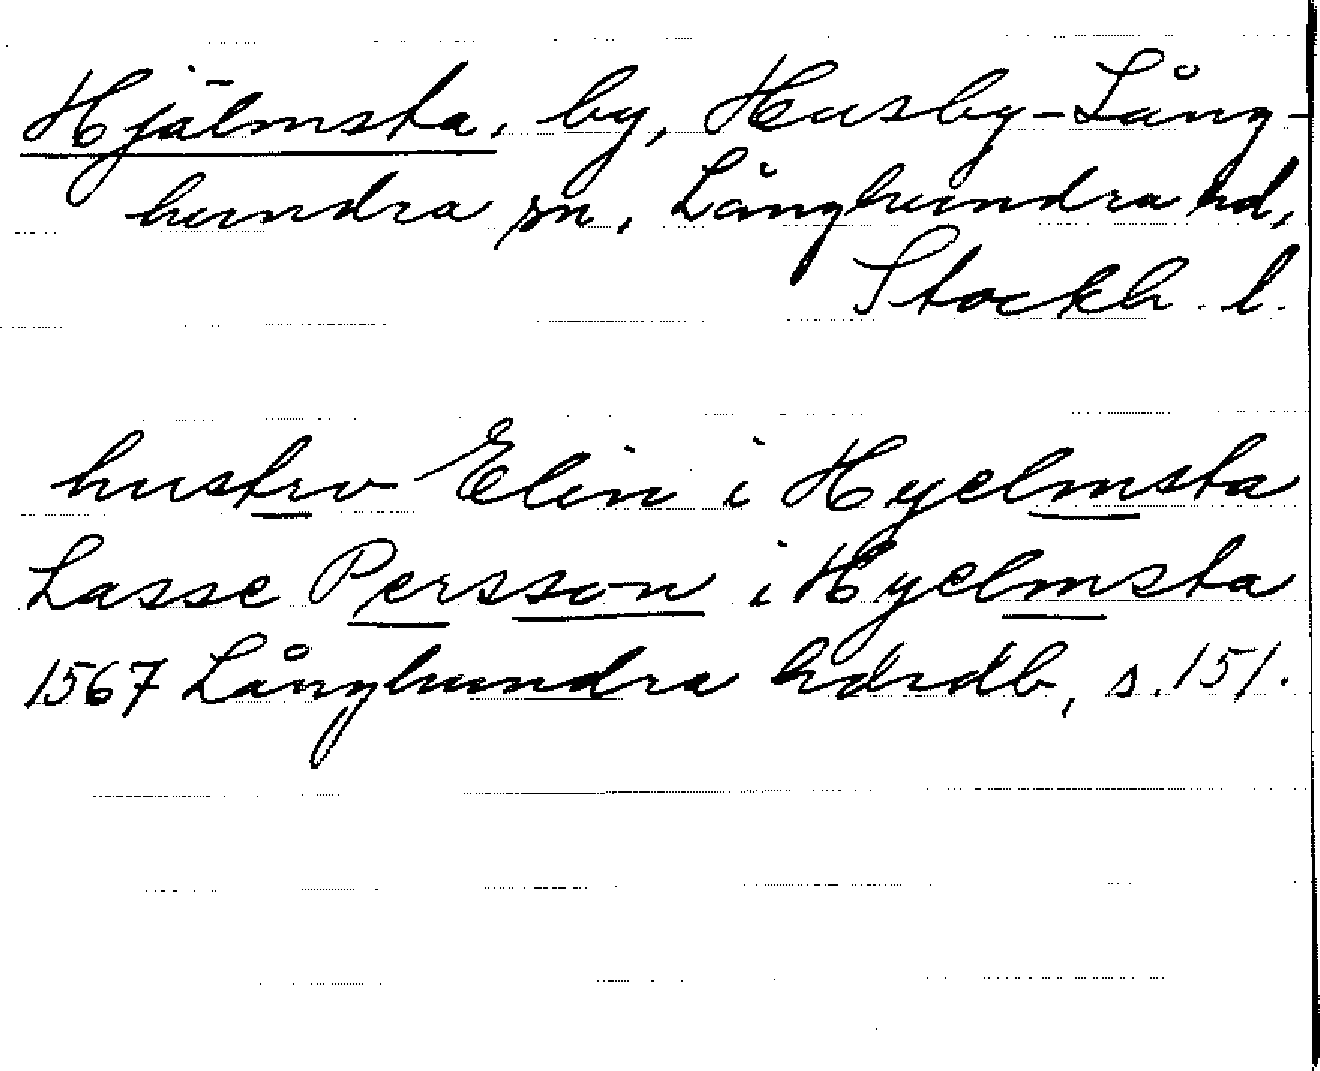 Hjälmsta, by, Husby-Lång-
hundra sn, Långhundra hd,
Stockh. l.
hustrv Elin i Hyelmsta
Lasse Persson i Hyelmsta
1567 Långhundra hdrdb, s. 151.